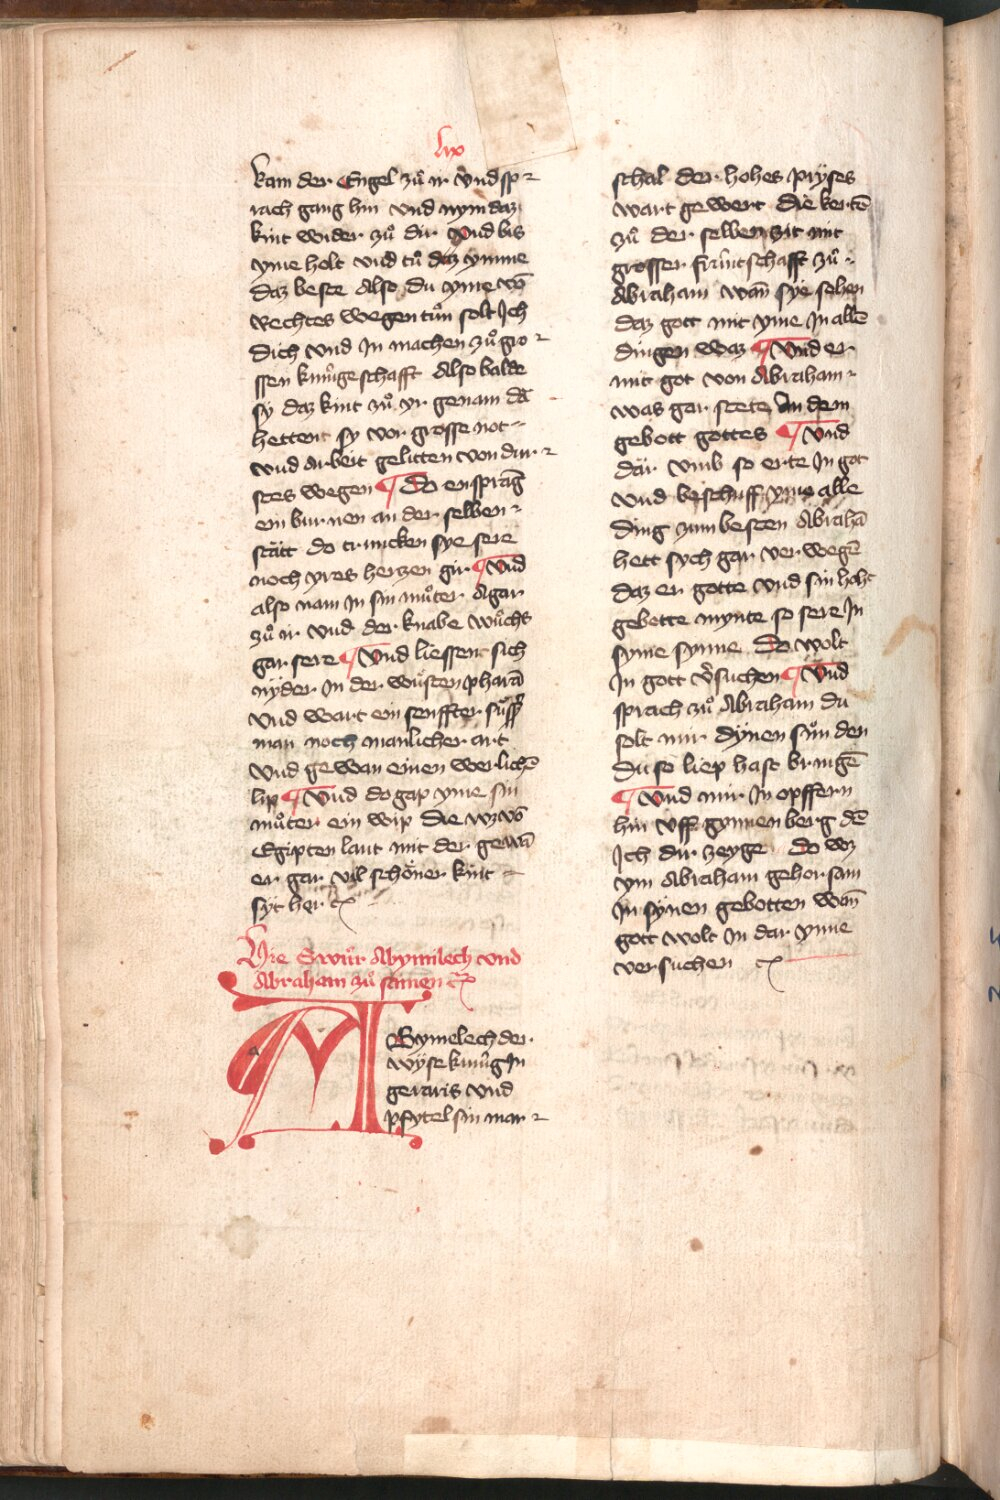 lix
kam der Engel zuͦ ir vnd sp
rach gang hin vnd nym daz
kint wider zuͦ dir vnd bis
yme holt vnd tuͦ daz ymme
daz beste Also du yme vō
Rechtes wegen tuͦn solt Ich
dich vnd In machen zuͦ gro
ssen kunigeschafft Also balde
sy daz kint zuͦ yr genam dā
hettent sy vor grosse not
vnd arbeit gelitten von dur
stes wegen ¶ Do ensprāg
ein burnen an der selben
stätt do truncken sye sere
noch yres herzen gir ¶ Vnd
also nam In sin muͦter Agar
zuͦ ir vnd der knabe wuͦchs
gar sere ¶ Vnd liessent sich
nyder In der wuͤsten pharā
vnd wart ein senffter
man noch manlicher art
vnd gewan einen werlichē
lip ¶ Vnd do gap yme sin
muͦter ein wip die vz vō
Egipten lant mit der gewā
er gar vil schoͤner kint
syt her
Wie Swuͦr Abymilech vnd
Abraham zuͦ samen
ABymelech der
wyse kunig In
geraris vnd
pfytel sin mar
schal der hohes pryses
wart gewert die kertē
zuͦ der selben zit mit
grosser fruntschafft zuͦ
Abraham wan̄ sye sehen
daz gott mit yme In allē
dingen waz ¶ Vnd er
mit got von Abraham
was gar stete an dem
gebott gottes ¶ Vnd
dar vmb so erte In got
vnd beschuff yme alle
ding zum besten Abrahā
hett sych gar verwegē
daz er gotte vnd sin hohe
gebotte mynte so sere In
syme synne Do wolt
In gott v̓suchen ¶ Vnd
sprach zuͦ Abraham du
solt mir dynen suͦn den
du so liep hast bringē
¶ Vnd mir In opffern
hin vff gynnen berg dē
Ich dir zeyge do wz
ym Abraham gehorsam
In synen gebotten wan̄
gott wolt In dar ynne
versuchen